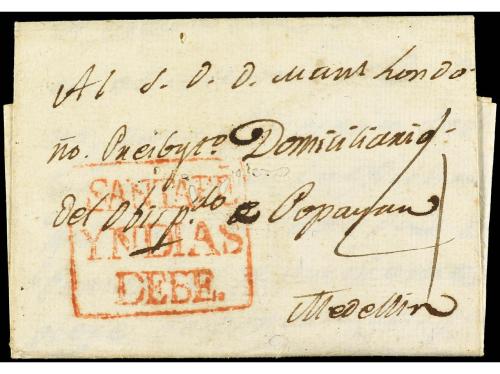 Al S. D. D. Man.l Londo
ño. Presbyt.o Domiciliario
del Obisp.do e Popayan
SANTAFE
YNDIAS
DEBE.
Medellin